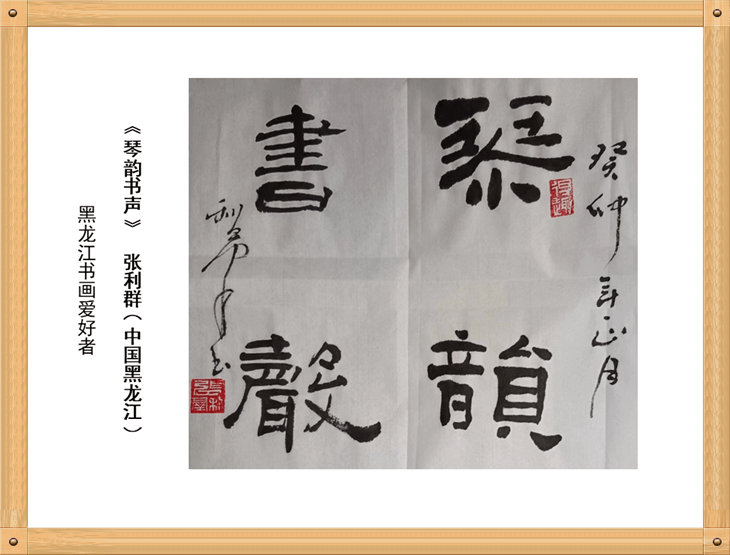 癸卯年正月
琴韻
得趣
書聲
利群
《琴韵书声》 张利群（中国黑龙江）
黑龙江书画爱好者